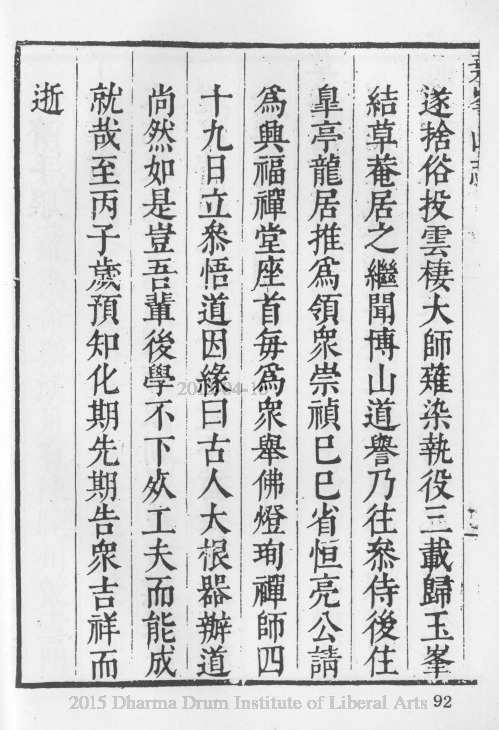 遂捨俗投雲棲大師薙染執役三載歸玉峯
結草菴居之繼聞博山道譽乃往叅侍後住
臯亭龍居推爲領衆崇禎巳巳省恒亮公請
爲興福禪堂座首每爲衆舉佛燈珣禪師四
十九日立叅悟道因緣曰古人大根器辦道
尚然如是豈吾輩後學不下死工夫而能成
就哉至丙子歲預知化期先期告衆吉祥而
逝
2015 Dharma Drum Institute of Liberal Arts 92